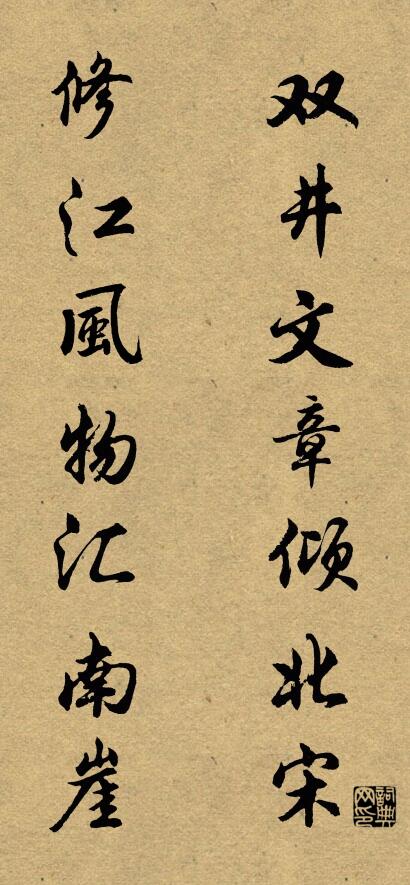 双井文章倾北宋
修江風物汇南崖
詞典网印